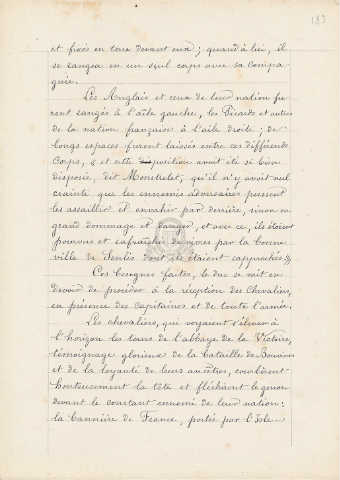 183
et fixés en terre devant eux ; quand à lui, il
se rangea en un seul corps avec sa compa-
gnie.
Les Anglais et ceux de leur nation fu-
rent rangés à l'aile gauche, les Picards et autres
de la nation française à l'aile droite ; de
longs espaces furent laissés entre ces différents
corps, & et cette position avait été si bien
disposée, dit Monstrelet, qu'il n'y avait nul
crainte que les ennemis adversaires pussent
les assaillir et envahir par derrière, sinon en
grand dommage et danger, et avec ce, ils étoient
pourvus et rafraîchis de vivres par la bonne
ville de Senlis dont ils étaient rapprochés. »
Ces besognes faites, le duc se mit en
devoir de procéder à la réception des Chevaliers,
en présence des Capitaines et de toute l'armée.
Les chevaliers, qui voyaient s'élever à
l'horizon les tours de l'abbaye de la Victoire,
témoignage glorieux de la bataille de Bouvines
et de la loyauté de leurs ancêtres, courbèrent
honteusement la tête et fléchirent le genou
devant le constant ennemi de leur nation :
la bannière de France, portée par l'Isle-